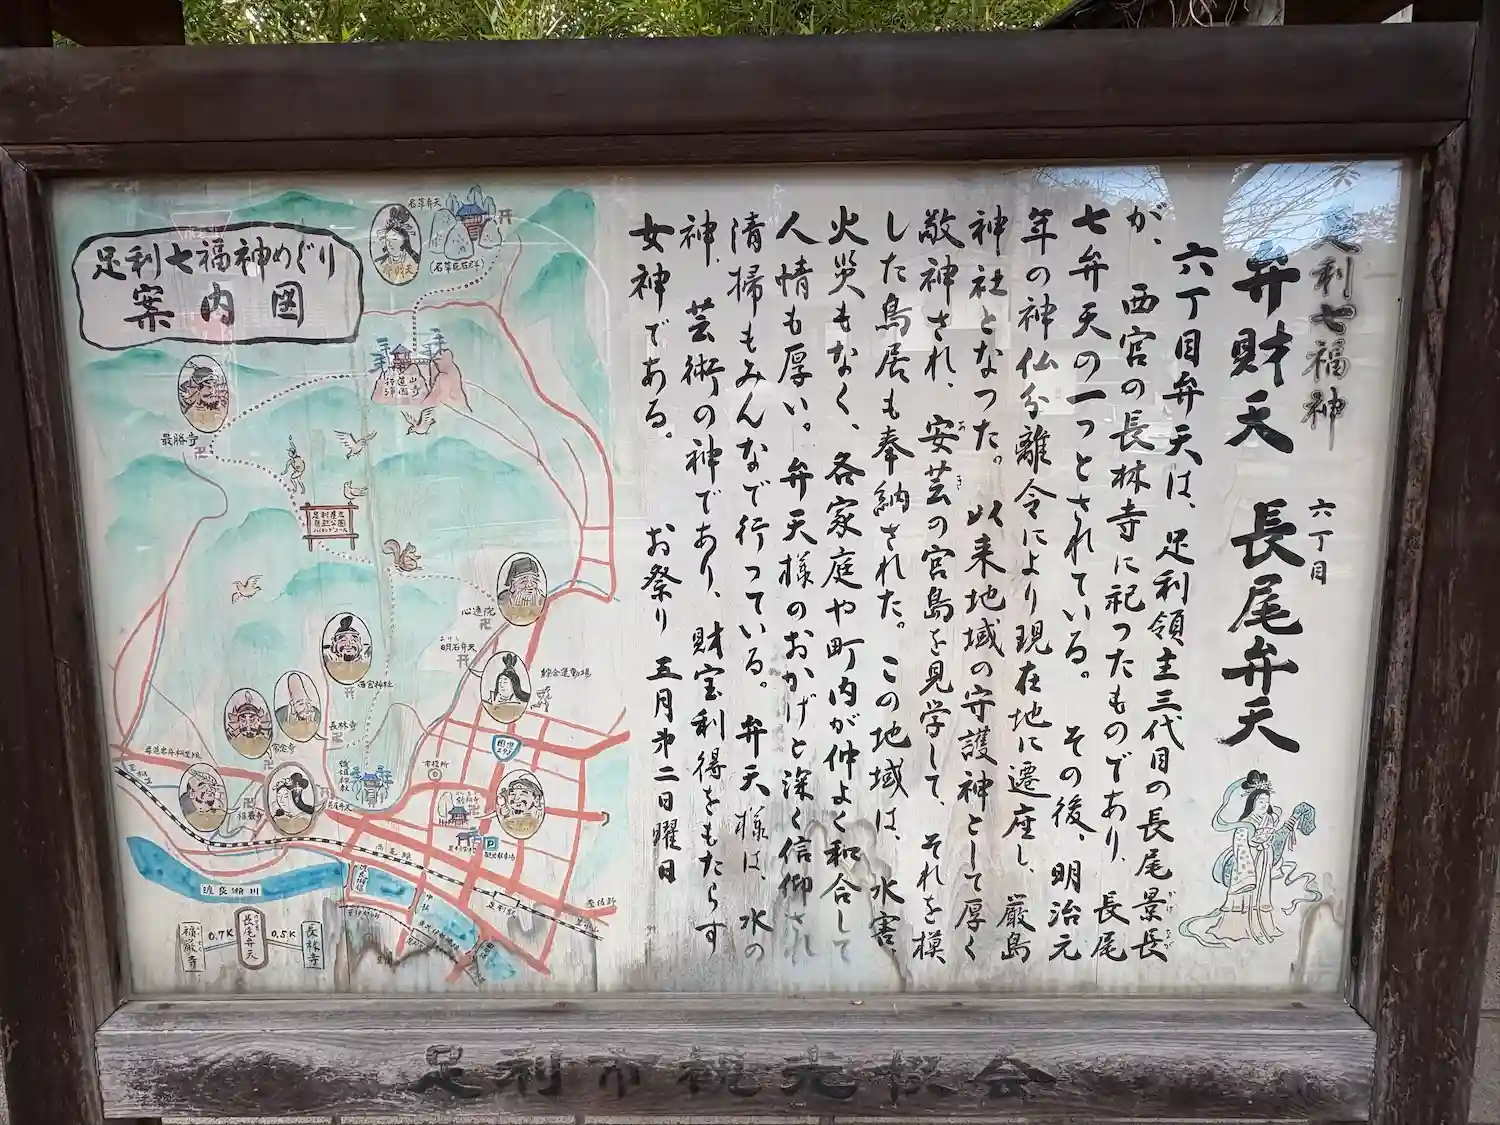 足利七福神
六丁目
弁財天 長尾弁天
六丁目弁天は、足利領主三代目の長尾景長
かげ
なが
が、西宮の長林寺に祀つたものであり、長尾
七弁天の一つとされている。その後、明治元
年の神仏分離令により現在地に遷座し、厳島
神社となつた。以来地域の守護神として厚く
敬神され、安芸の宮島を見学して、それを模
あ
き
した鳥居も奉納された。この地域は、水害、
火災もなく、各家庭や町内が仲よく和合して
人情も厚い。弁天様のおかげと深く信仰され
清掃もみんなで行つている。弁天様は、水の
神、芸術の神であり、財宝利得をもたらす
女神である。 お祭り 五月第二日曜日
足利七福神めぐり
案内図
名草弁天
(名草巨石群)
行道山
浄因寺
最勝寺
心通院
明石弁天
総合運動場
西宮神社
長林寺
常念寺
織姫神社
市役所
国道
293
福厳寺
長尾弁天
P
観光駐車場
両毛線
足利駅
渡良瀬川
福厳寺
0.7K
長尾弁天
0.5K
長林寺
足利市観光協会